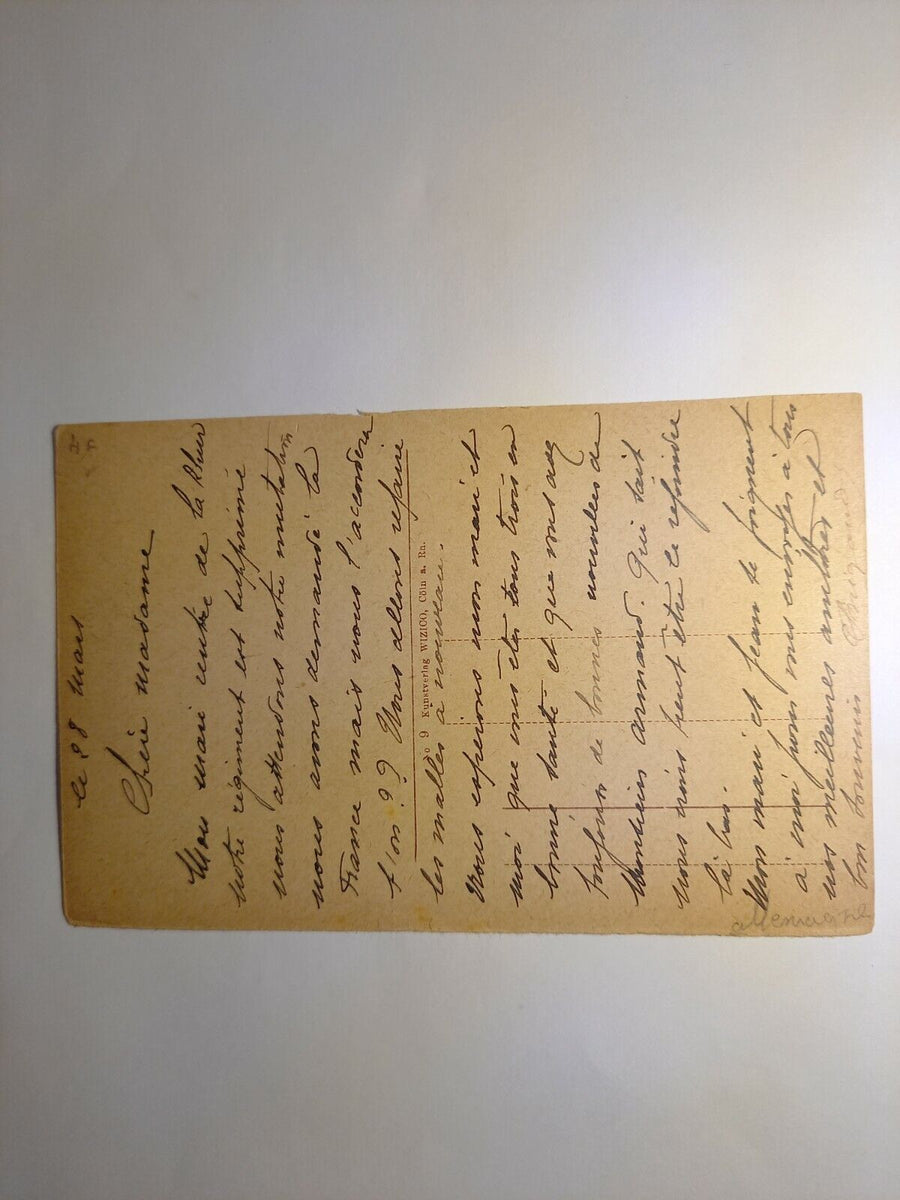 le 28 Mars
Chère Madame
Mon mari rentre de la Rhur
notre régiment est supprimé
nous attendons notre mutation
nous avons demandé la
France mais nous l'accordera
t'on ?? Nous allons refaire
les malles à nouveau.
No 9 Kunstverlag WIZICO, Cöln a. Rh.
Nous espérons mon mari et
moi que vous êtes tous trois en
bonne santé et que vous avez
toujours de bonnes nouvelles de
Monsieur Armand. Qui sait
nous irons peut être le rejoindre
là bas.
Mon mari et Jean se joignent
à moi pour vous envoyer à tous
nos meilleures amitiés et
bon souvenir
allemagne